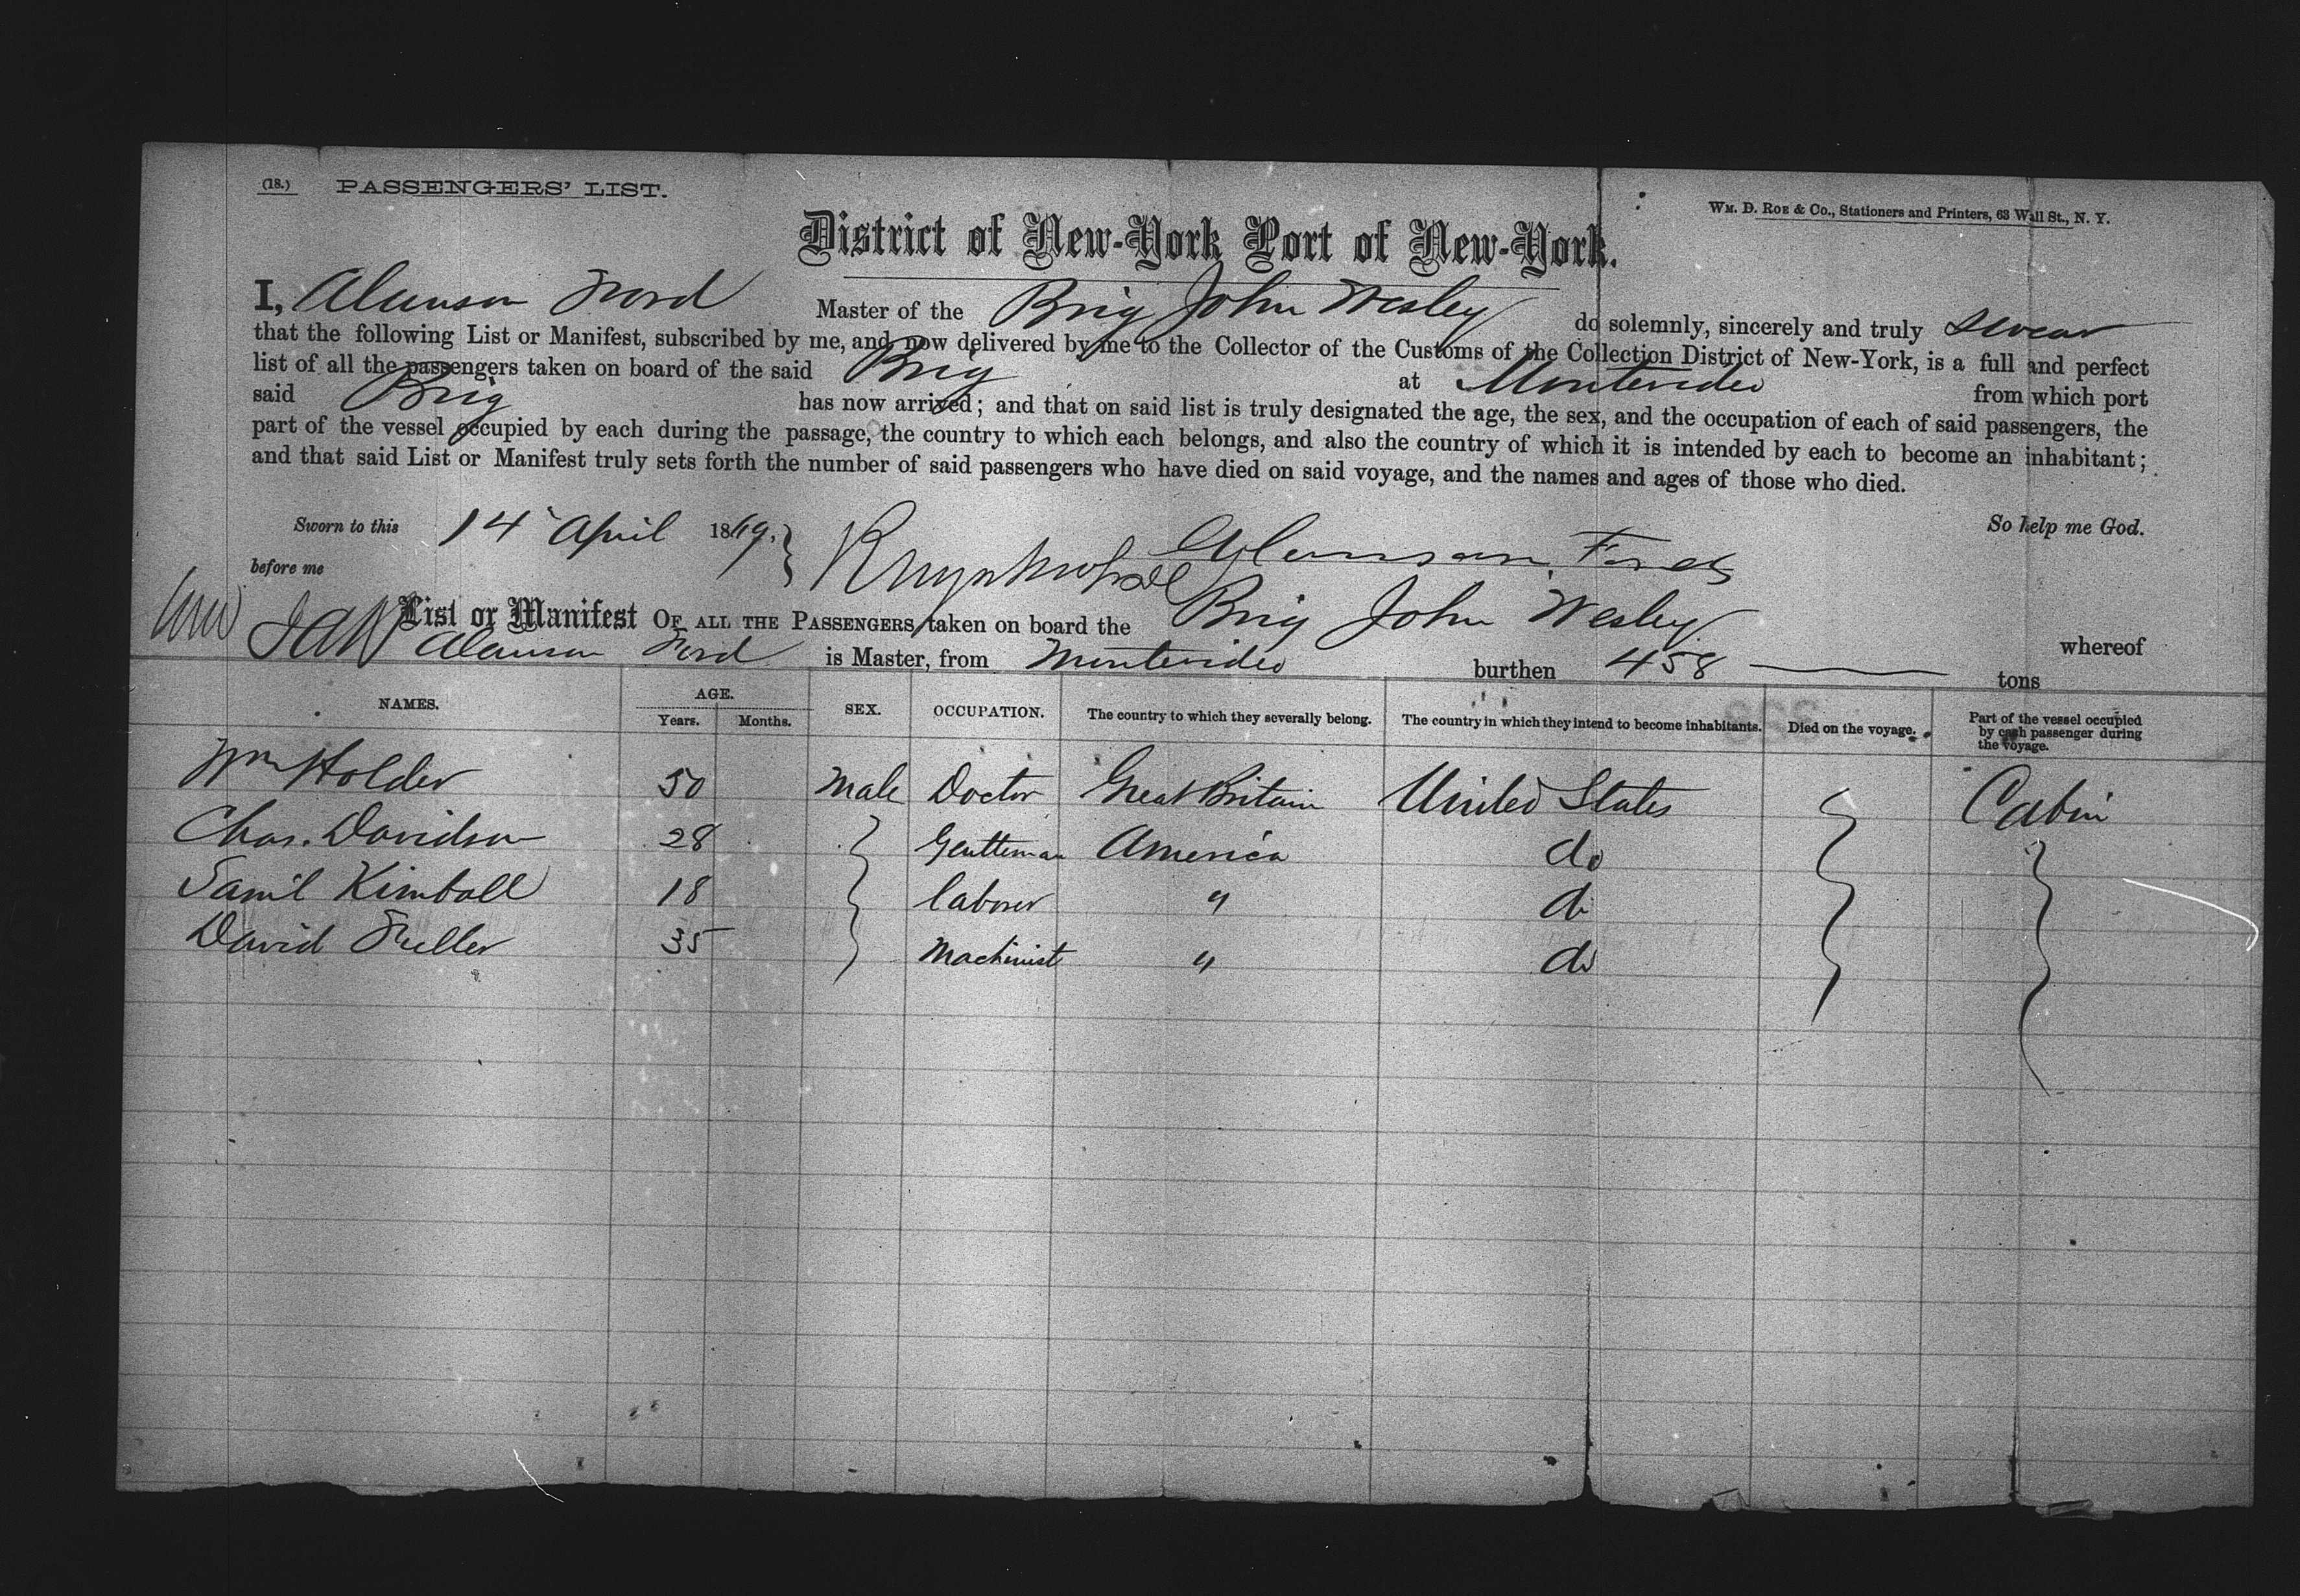 (18.) PASSENGERS' LIST.
WM. D. ROE & Co., Stationers and Printers, 63 Wall St., N. Y.
District of New-York Port of New-York.
I, Alanson Ford Master of the Brig John Wesley do solemnly, sincerely and truly swear
that the following List or Manifest, subscribed by me, and now delivered by me to the Collector of the Customs of the Collection District of New-York, is a full and perfect
list of all the passengers taken on board of the said Brig at Montevideo from which port
said Brig has now arrived; and that on said list is truly designated the age, the sex, and the occupation of each of said passengers, the
part of the vessel occupied by each during the passage, the country to which each belongs, and also the country of which it is intended by each to become an inhabitant;
and that said List or Manifest truly sets forth the number of said passengers who have died on said voyage, and the names and ages of those who died.
So help me God.
Sworn to this 14 April 1869.
before me
Alanson Ford
List or Manifest OF ALL THE PASSENGERS taken on board the Brig John Wesley whereof
JAW Alanson Ford is Master, from Montevideo burthen 458 tons
NAMES. AGE. Years. Months. SEX. OCCUPATION. The country to which they severally belong. The country in which they intend to become inhabitants. Died on the voyage. Part of the vessel occupied by each passenger during the voyage.
Wm Holder 50 Male Doctor Great Britain United States Cabin
Chas. Davidson 28 Gentleman America do
Saml Kimball 18 laborer " do
David Fuller 35 Machinist " do